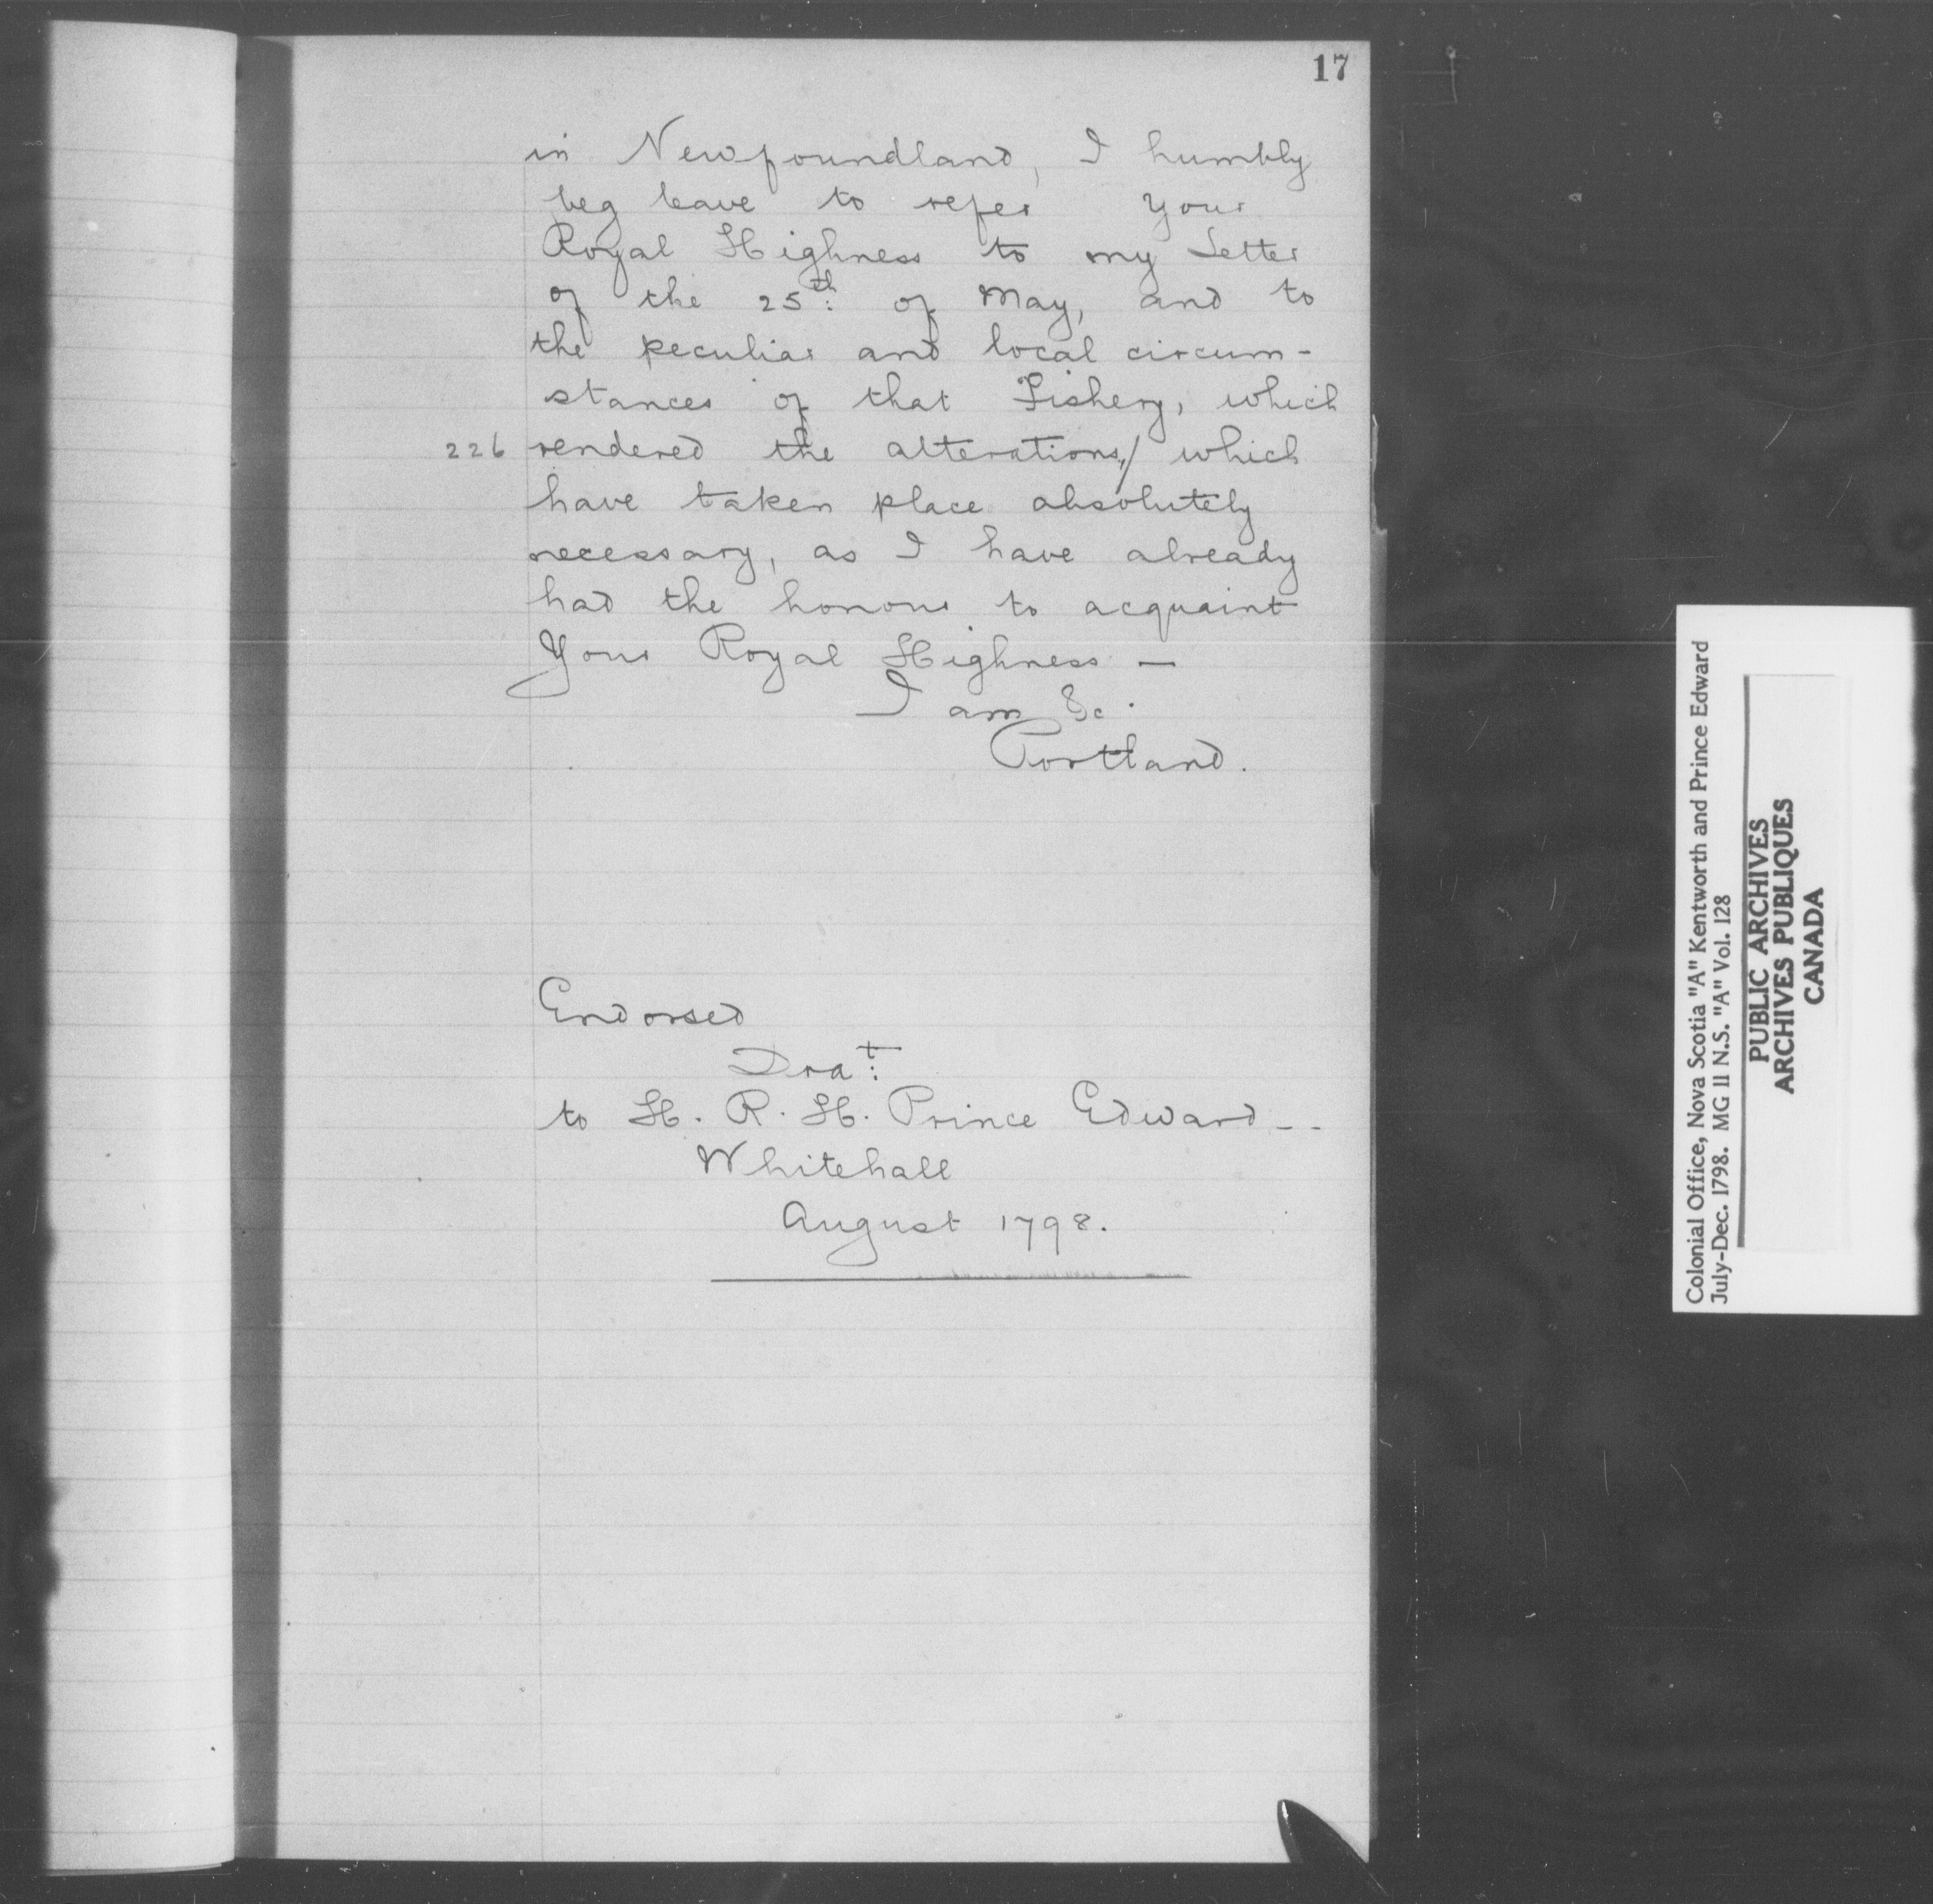 17
in Newfoundland, I humbly
beg leave to refer Your
Royal Highness to my Letter
of the 25th: of May, and to
the peculiar and local circum-
stances of that Fishery, which
226 rendered the alterations,/ which
have taken place absolutely
necessary, as I have already
had the honour to acquaint
Your Royal Highness —
I am &c.
Portland.
Endorsed
Dra:t
to H. R. H. Prince Edward--
Whitehall
August 1798.
Colonial Office, Nova Scotia "A" Kentworth and Prince Edward
July-Dec. 1798. MG 11 N.S. "A" Vol. 128
PUBLIC ARCHIVES
ARCHIVES PUBLIQUES
CANADA